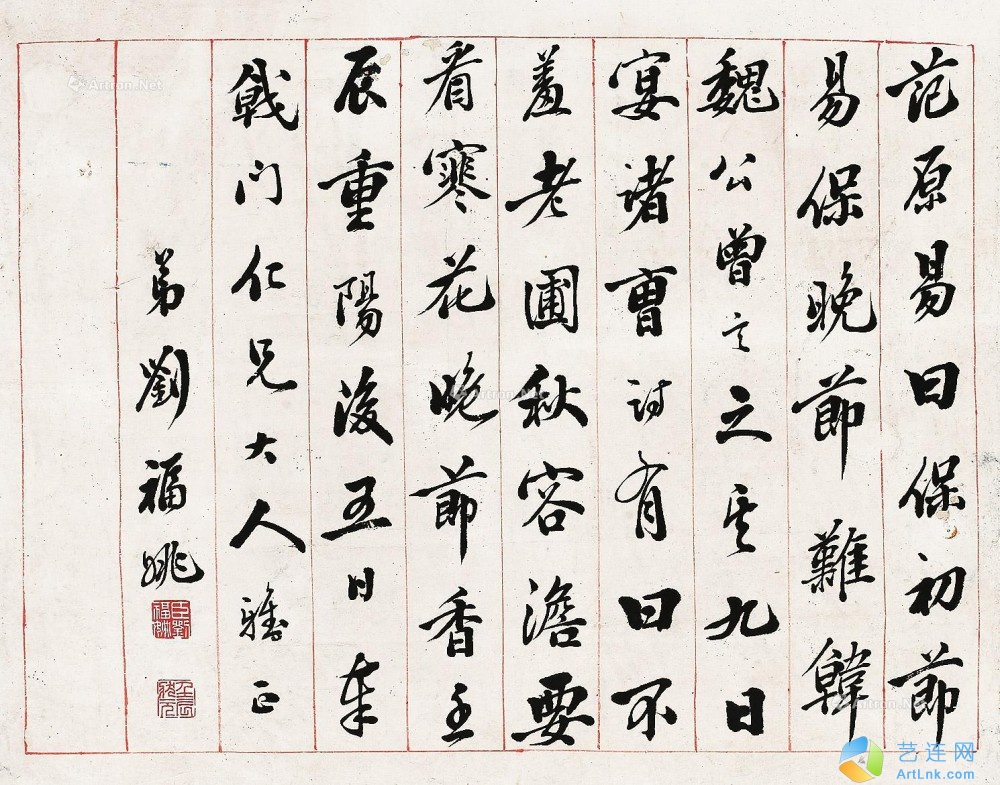 范原易曰保初節
易保晚節難韓
魏公曾言之其九日
宴諸曹詩有曰不
羞老圃秋容澹要
看寒花晚節香壬
辰重陽後五日奉
戟門仁兄大人雅正
弟劉福姚
臣劉福姚
Artron.Net
艺连网
ArtLnk.com